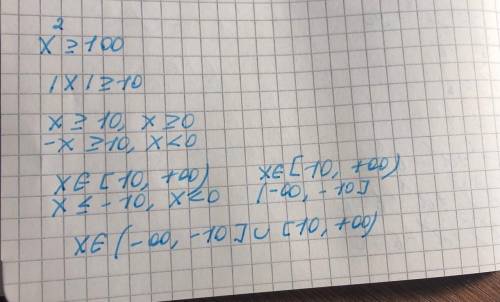 x² ≥ 100
|x| ≥ 10
x ≥ 10, x ≥ 0
-x ≥ 10, x < 0
x ∈ [10, +∞)
x ≤ -10, x ≤ 0
x ∈ [10, +∞)
(-∞, -10]
x ∈ (-∞, -10] ∪ [10, +∞)